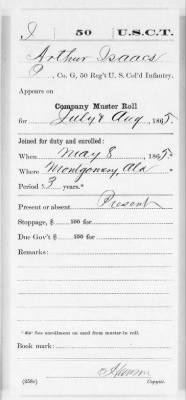 I 50 U.S.C.T.
Arthur Isaacs
P, Co. G, 50 Reg't U. S. Col'd Infantry.
Appears on
Company Muster Roll
for July & Aug, 1865.
Joined for duty and enrolled:
When May 8, 1865.
Where Montgomery Ala *
Period 3 years.*
Present or absent Present
Stoppage, $ 100 for
Due Gov't $ 100 for
Remarks:
*See enrollment on card from muster-in roll.
Book mark:
(358c) Copyist.